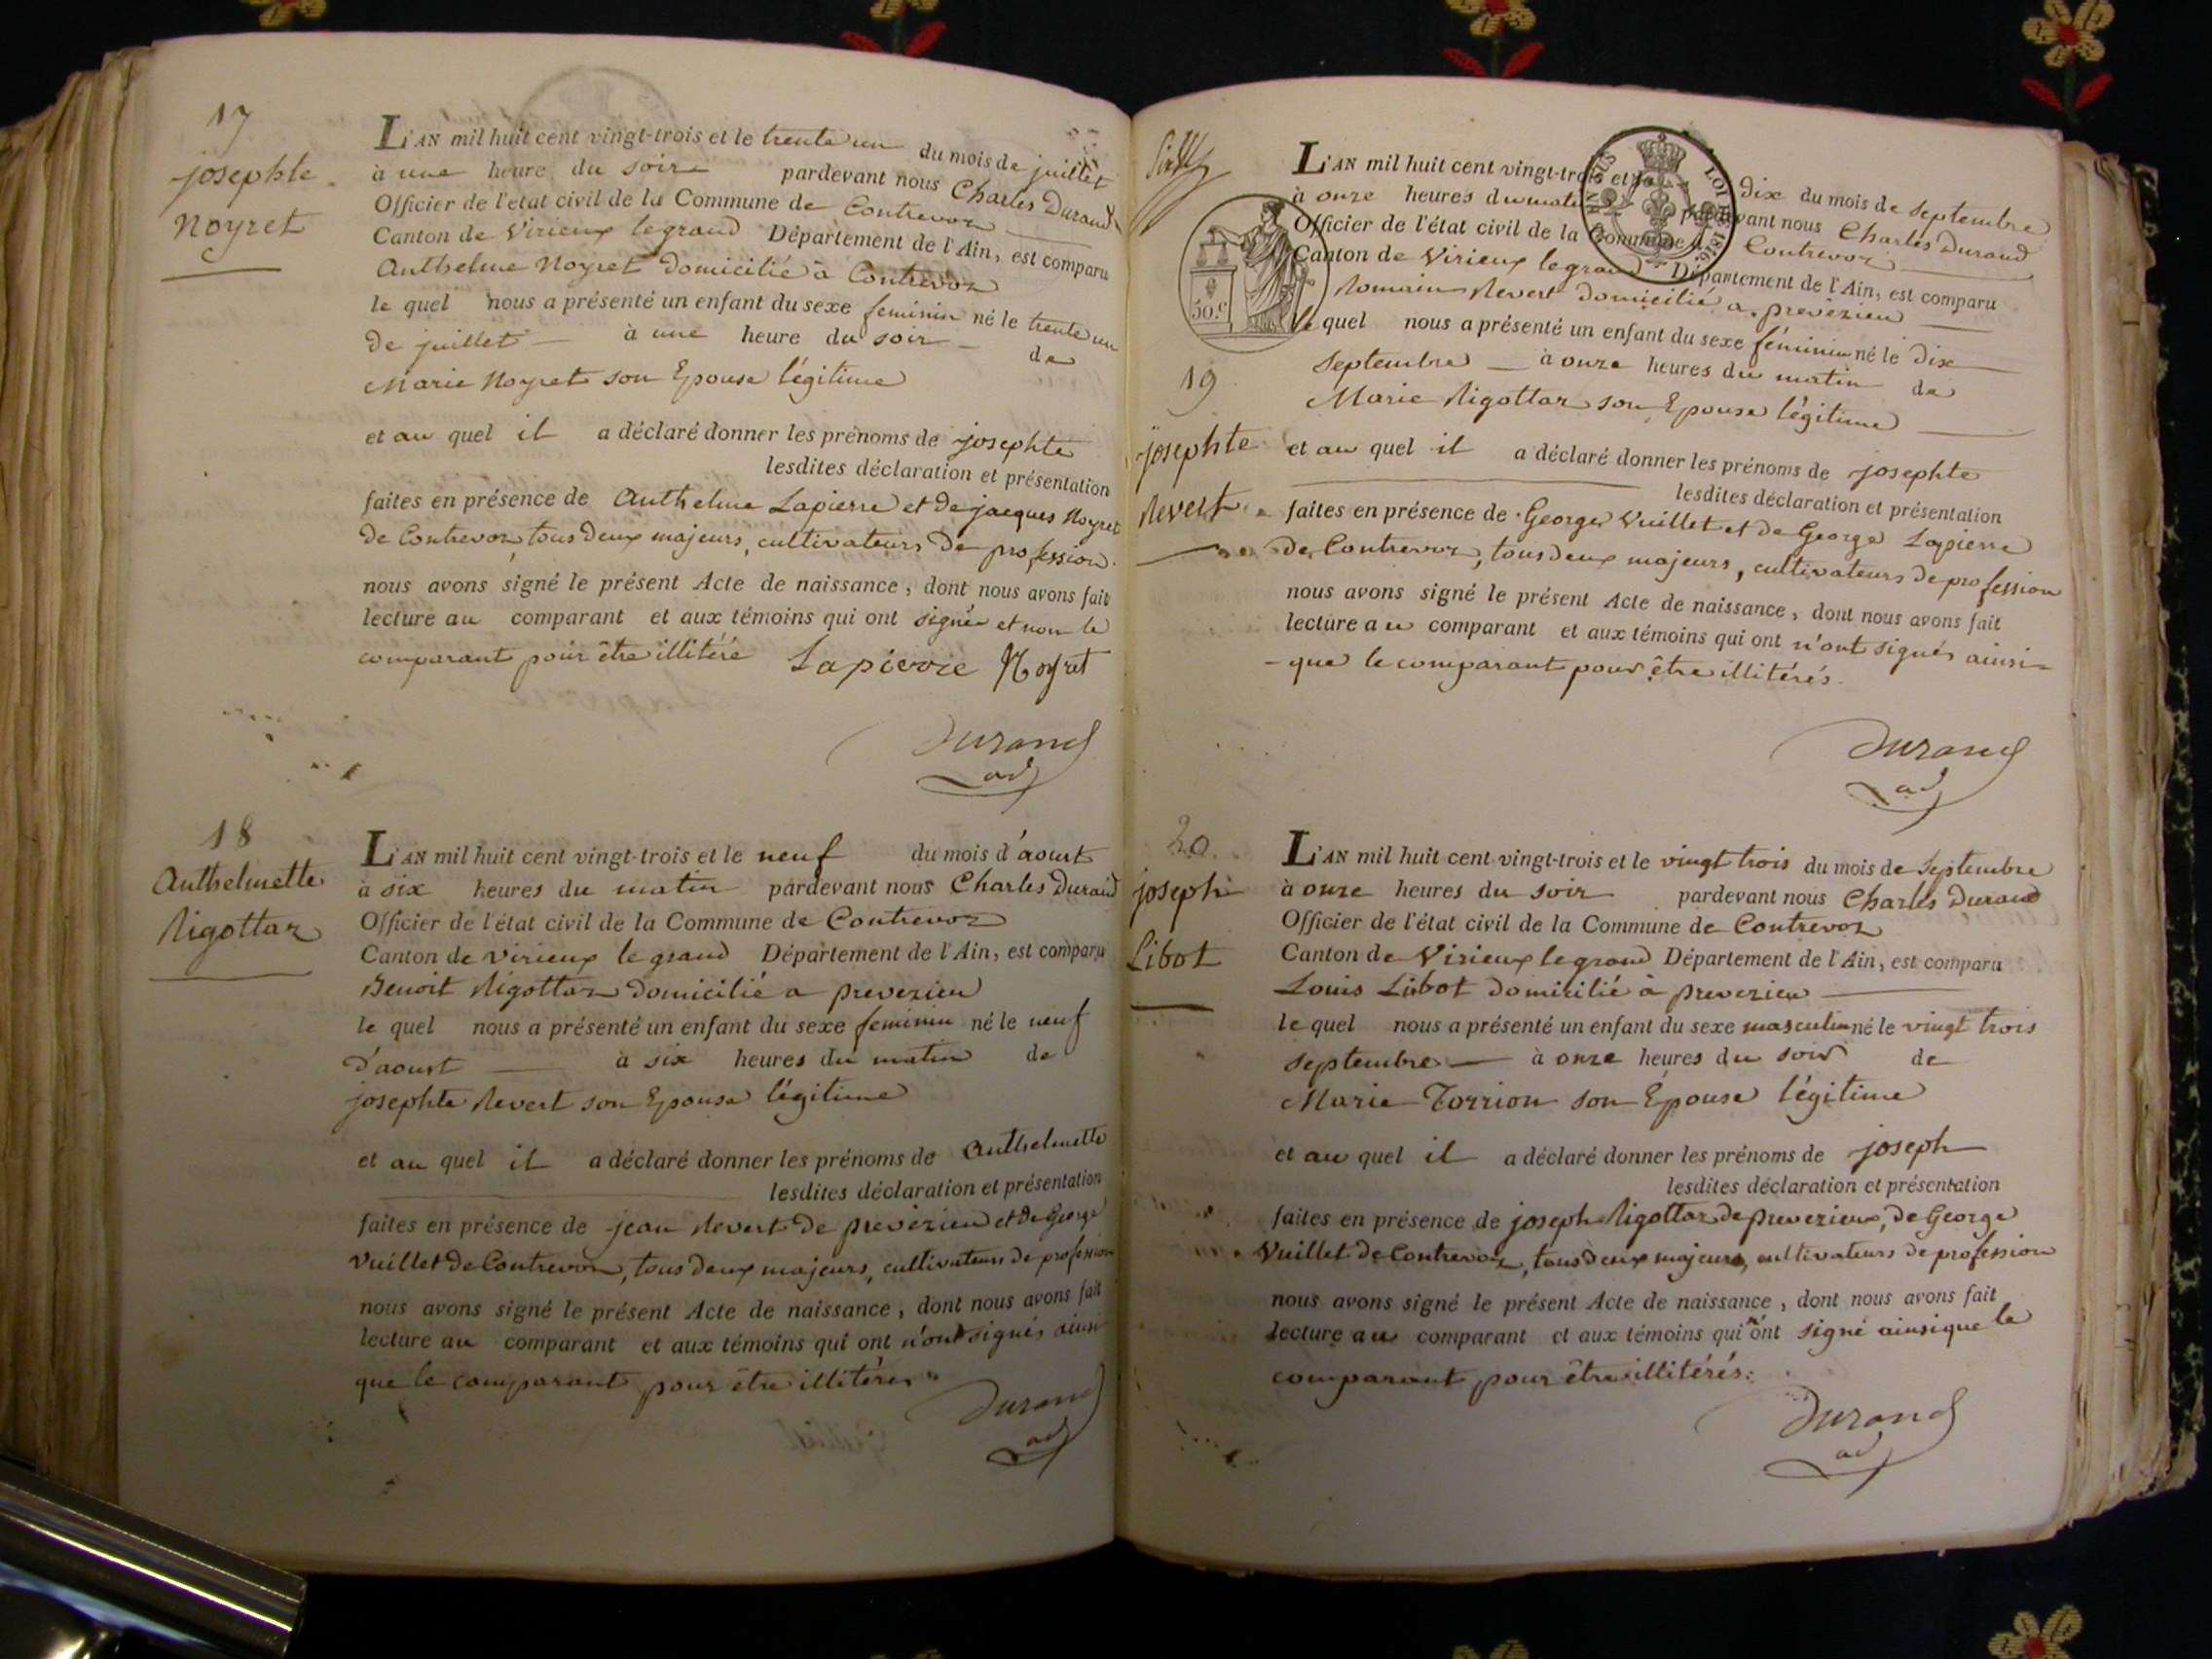 17
josephte
Noyret
L'AN mil huit cent vingt-trois et le trente un du mois de juillet
à une heure du soir pardevant nous Charles Durand
Officier de l'état civil de la Commune de Contrevoz
Canton de Virieux legrand Département de l'Ain, est comparu
Anthelme Noyret domicilié à Contrevoz
le quel nous a présenté un enfant du sexe feminin né le trente un
de juillet à une heure du soir de
Marie Noyret son Epouse légitime
et au quel il a déclaré donner les prénoms de josephte
lesdites déclaration et présentation
faites en présence de Anthelme Lapierre et de jacques Noyret
de Contrevoz, tous deux majeurs, cultivateurs de profession.
nous avons signé le présent Acte de naissance, dont nous avons fait
lecture au comparant et aux témoins qui ont signé et non le
comparant pour être illitéré Lapierre Noyret
Durand
ad
18
Anthelmette
Rigottaz
L'AN mil huit cent vingt-trois et le neuf du mois d'aoust
à six heures du matin pardevant nous Charles Durand
Officier de l'état civil de la Commune de Contrevoz
Canton de Virieux le grand Département de l'Ain, est comparu
Benoit Rigottaz domicilié a prevezieu
le quel nous a présenté un enfant du sexe feminin né le neuf
d'aoust à six heures du matin de
josephte Revert son Epouse légitime
et au quel il a déclaré donner les prénoms de Anthelmette
lesdites déclaration et présentation
faites en présence de jean Revert de prevezieu et de George
Vuillet de Contrevoz, tous deux majeurs, cultivateurs de profession
nous avons signé le présent Acte de naissance, dont nous avons fait
lecture au comparant et aux témoins qui ont n'ont signés ainsi
que le comparant pour être illitérés
Durand
ad
50.c
LOI DE 1816.
19
josephte
Revert
L'AN mil huit cent vingt-trois et le dix du mois de Septembre
à onze heures du matin pardevant nous Charles Durand
Officier de l'état civil de la Commune de Contrevoz
Canton de Virieux legrand Département de l'Ain, est comparu
Romain Revert domicilié a prevezieu
le quel nous a présenté un enfant du sexe féminin né le dix
Septembre à onze heures du matin de
Marie Rigottaz son Epouse légitime
et au quel il a déclaré donner les prénoms de josephte
lesdites déclaration et présentation
faites en présence de George Vuillet et de George Lapierre
de Contrevoz, tous deux majeurs, cultivateurs de profession
nous avons signé le présent Acte de naissance, dont nous avons fait
lecture au comparant et aux témoins qui ont n'ont signés ainsi=
- que le comparant pour être illitérés.
Durand
ad
20
joseph
Libot
L'AN mil huit cent vingt-trois et le vingt trois du mois de Septembre
à onze heures du soir pardevant nous Charles Durand
Officier de l'état civil de la Commune de Contrevoz
Canton de Virieux legrand Département de l'Ain, est comparu
Louis Libot domicilié à prevezieu
le quel nous a présenté un enfant du sexe masculin né le vingt trois
septembre à onze heures du soir de
Marie Torrion son Epouse légitime
et au quel il a déclaré donner les prénoms de joseph
lesdites déclaration et présentation
faites en présence de joseph Rigottaz de prevezieux, de George
Vuillet de Contrevoz, tous deux majeurs, cultivateurs de profession
nous avons signé le présent Acte de naissance, dont nous avons fait
lecture au comparant et aux témoins qui n'ont signé ainsi que le
comparant pour être illitérés.
Durand
ad